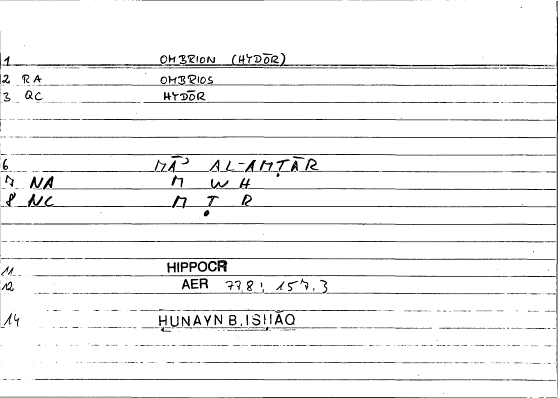 1 OMBRION (HYDŌR)
2 RA OMBRIOS
3 QC HYDŌR
6 MĀʾ AL-AMṬĀR
7 NA M W H
8 NC M Ṭ R
11 HIPPOCR
12 AER 778; 157,3
14 ḤUNAYN B. ISḤĀQ